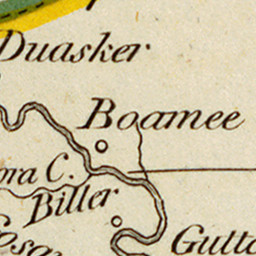 Duasker
Boamee
ora C.
Biller
Gutta